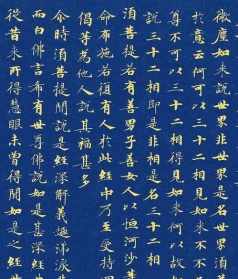 微塵如來說世界非世界是名世界須
於意云何可以三十二相見如來不不
尊不可以三十二相得見如來何以故
說三十二相即是非相是名三十二相
須菩提若有善男子善女人以恒河沙
命布施若復有人於此經中乃至受持
偈等為他人說其福甚多
爾時須菩提聞說是經深解義趣涕淚
而白佛言希有世尊佛說如是甚深經
從昔來所得慧眼未曾得聞如是之經